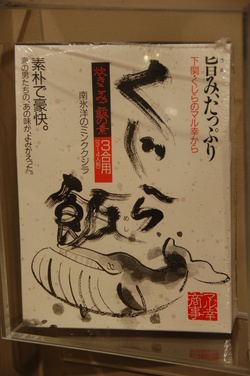 旨みたっぷり
下関くじらのマル幸から
くじら飯
炊きこみご飯の素
3合用
南氷洋のミンククジラ
素朴で豪快。
海の男たちの、あの味が、よみがえった。
マル幸商事